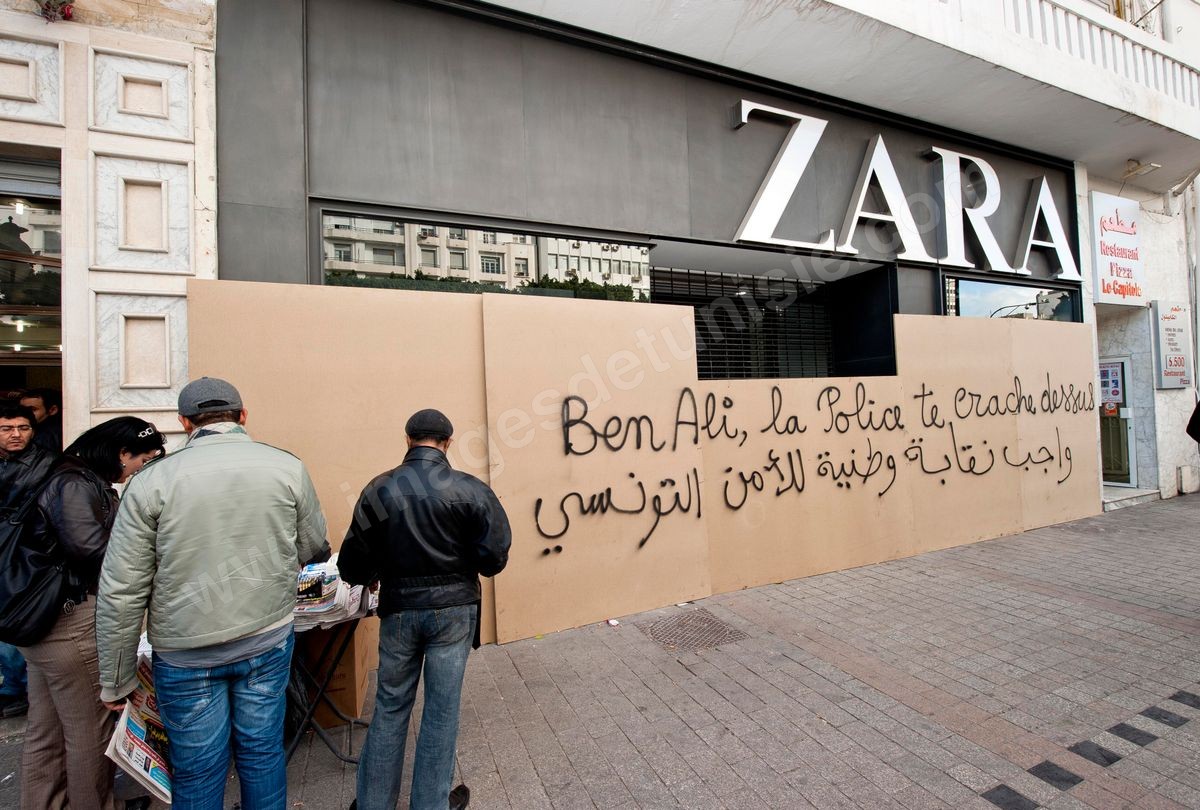 ZARA
مطعم
Restaurant
Pizza
Le Capitole
6.500
Restaurant
Pizza
Ben Ali, la Police te crache dessus
واجب نقابة وطنية للأمن التونسي
www.imagesdetunisie.com